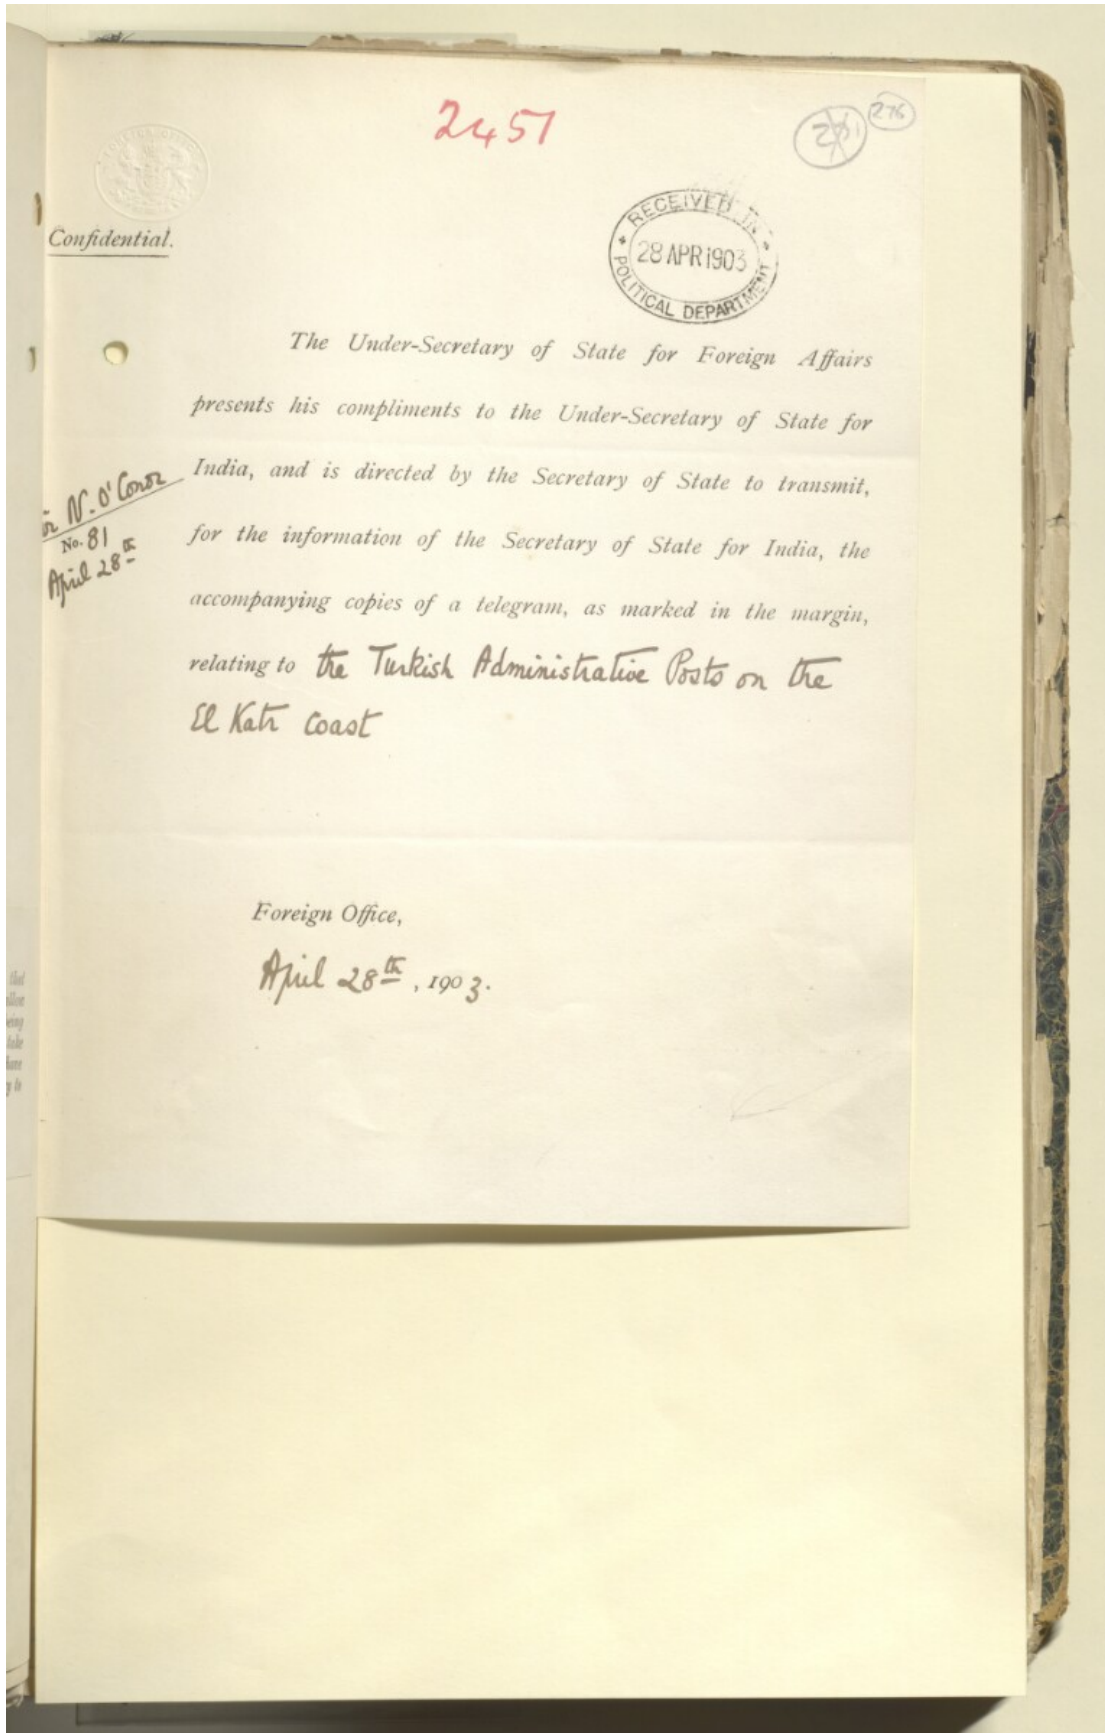 2451
276
Confidential.
RECEIVED IN
28 APR 1903
POLITICAL DEPARTMENT
The Under-Secretary of State for Foreign Affairs
presents his compliments to the Under-Secretary of State for
India, and is directed by the Secretary of State to transmit,
for the information of the Secretary of State for India, the
accompanying copies of a telegram, as marked in the margin,
relating to the Turkish Administrative Posts on the
El Katr Coast
N. O'Conor
No. 81
April 28th
Foreign Office,
April 28th, 1903.